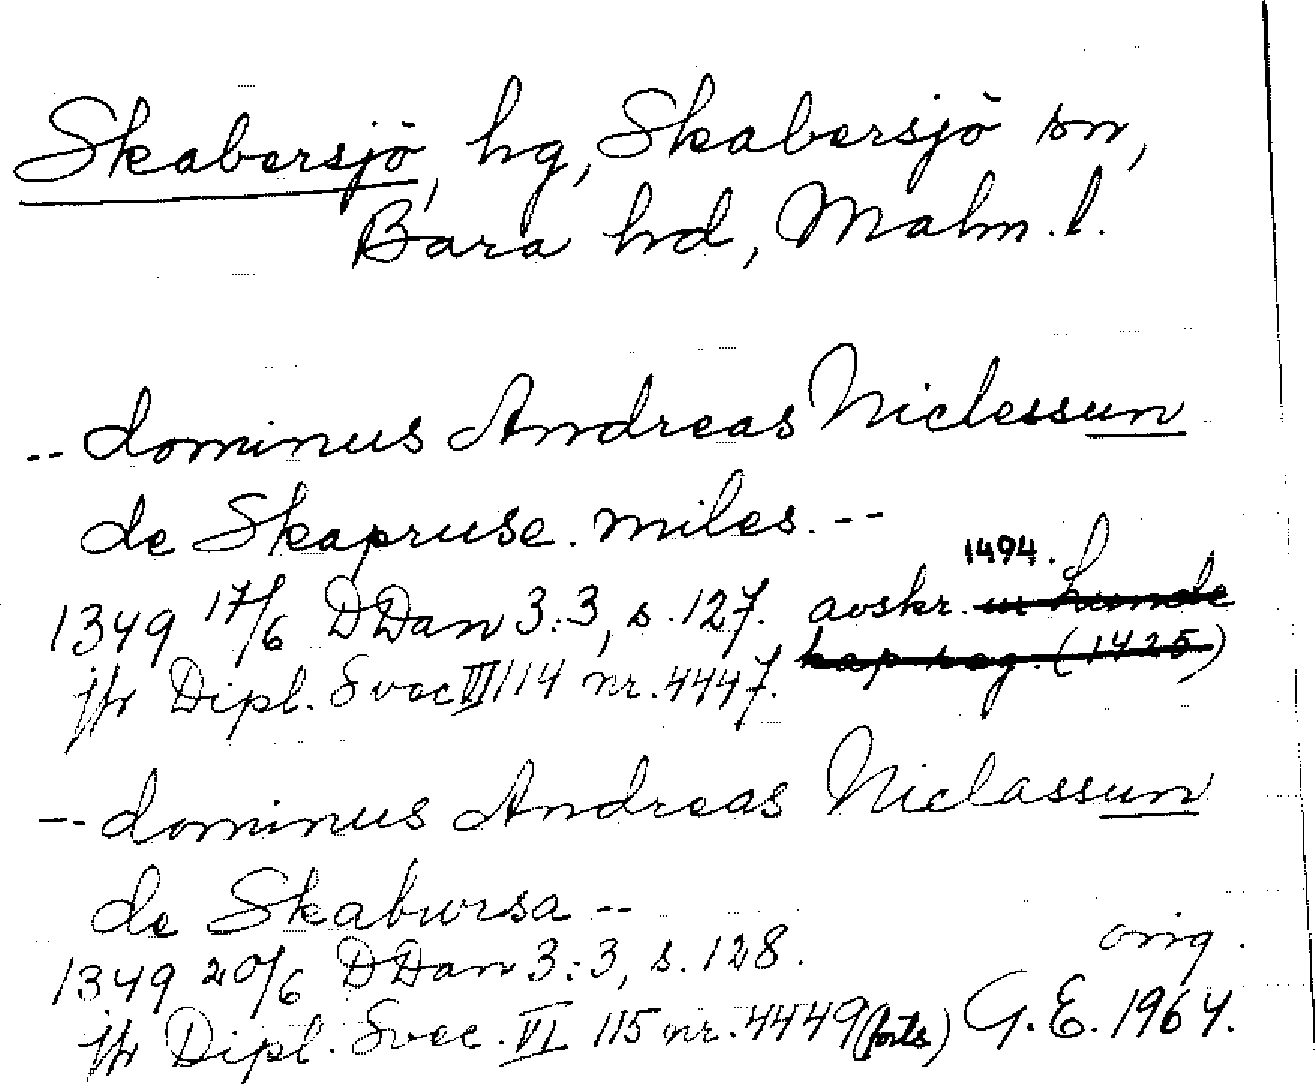 Skabersjö, hg, Skabersjö sn,
Bara hd, Malm.l.
-- dominus Andreas Niclessun
de Skapruse. miles. --
1349 17/6 DDan 3:3, s. 127. avskr. 1494.
jfr Dipl. Svec VI 114 nr. 4447.
-- dominus Andreas Niclassun
de Skabursa --
1349 20/6 DDan 3:3, s. 128. orig.
jfr Dipl. Svec. VI 115 nr. 4449 (forts) G.E. 1964.